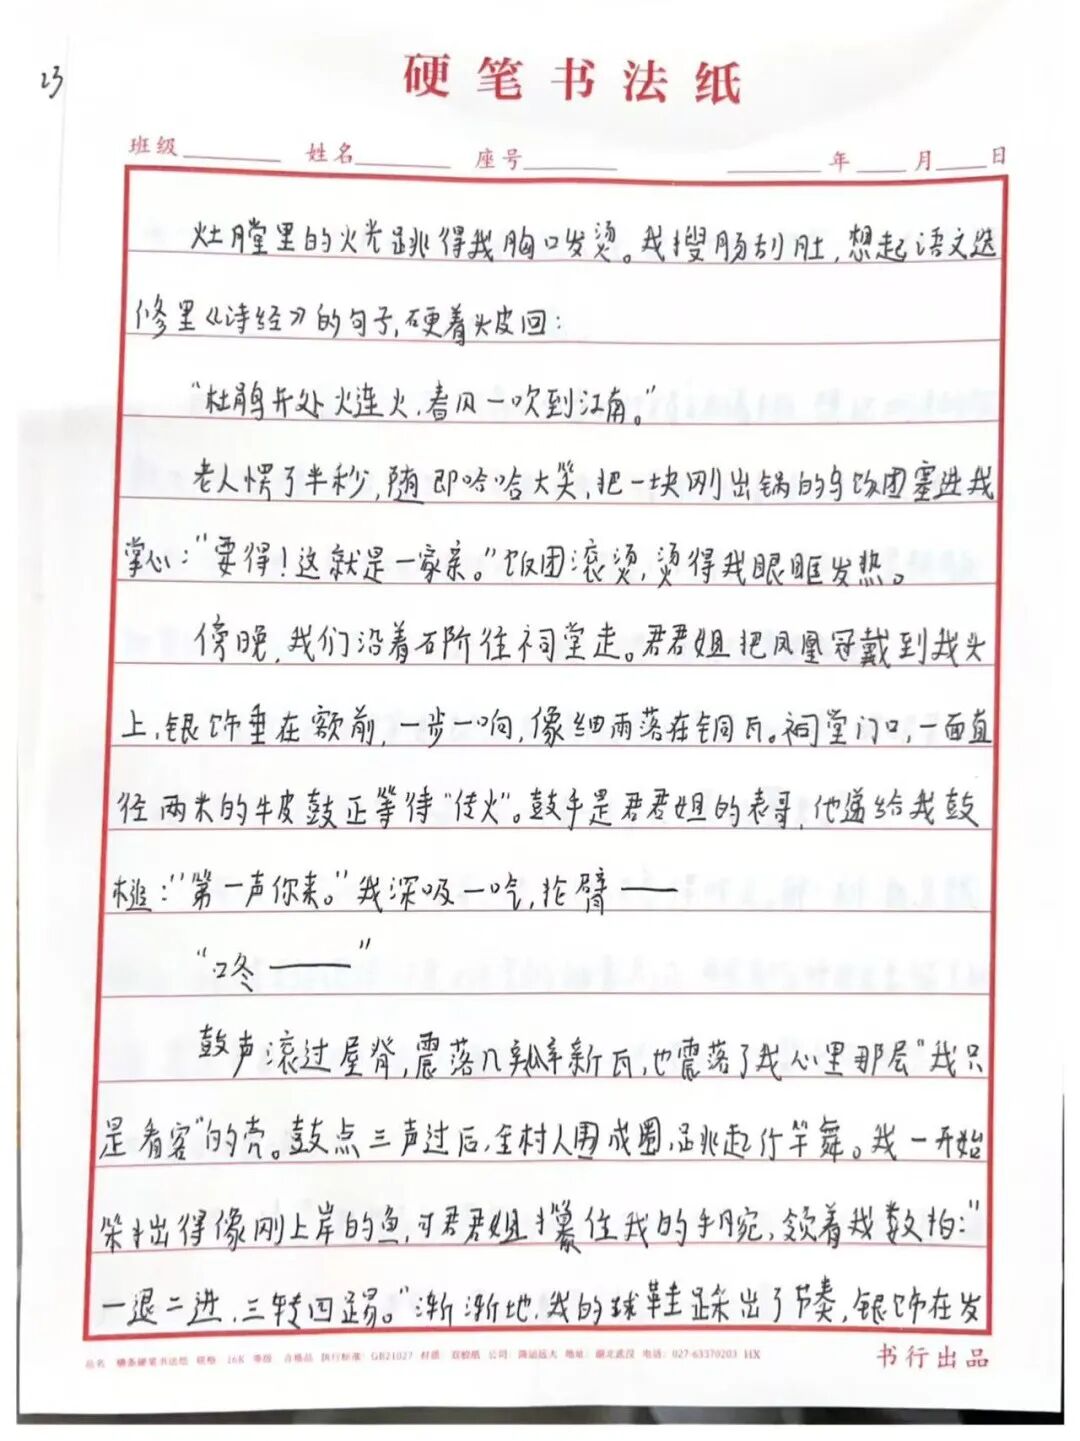 23
硬笔书法纸
班级 姓名 座号 年 月 日
灶膛里的火光跳得我胸口发烫。我搜肠刮肚,想起语文选
修里《诗经》的句子,硬着头皮回:
"杜鹃开处火连火,春风一吹到江南。"
老人愣了半秒,随即哈哈大笑,把一块刚出锅的乌饭团塞进我
掌心:"要得!这就是一家亲。"饭团滚烫,烫得我眼眶发热。
傍晚,我们沿着石阶往祠堂走。君君姐把凤凰冠戴到我头
上,银饰垂在额前,一步一响,像细雨落在铜瓦。祠堂门口,一面直
径两米的牛皮鼓正等待"传火"。鼓手是君君姐的表哥,他递给我鼓
槌:"第一声你来。"我深吸一气,抡臂——
"咚——"
鼓声滚过屋脊,震落几瓣新瓦,也震落了我心里那层"我只
是看客"的壳。鼓点三声过后,全村人围成圈,跳起竹竿舞。我一开始
笨拙得像刚上岸的鱼,可君君姐攥住我的手腕,领着我数拍:"
一退二进,三转四踢。"渐渐地,我的球鞋踩出了节奏,银饰在发
品名 横条硬笔书法纸 规格 16K 等级 合格品 执行标准 GB21027 材质 双胶纸 公司 地址:湖北武汉 电话:027-63370203 HX
书行出品